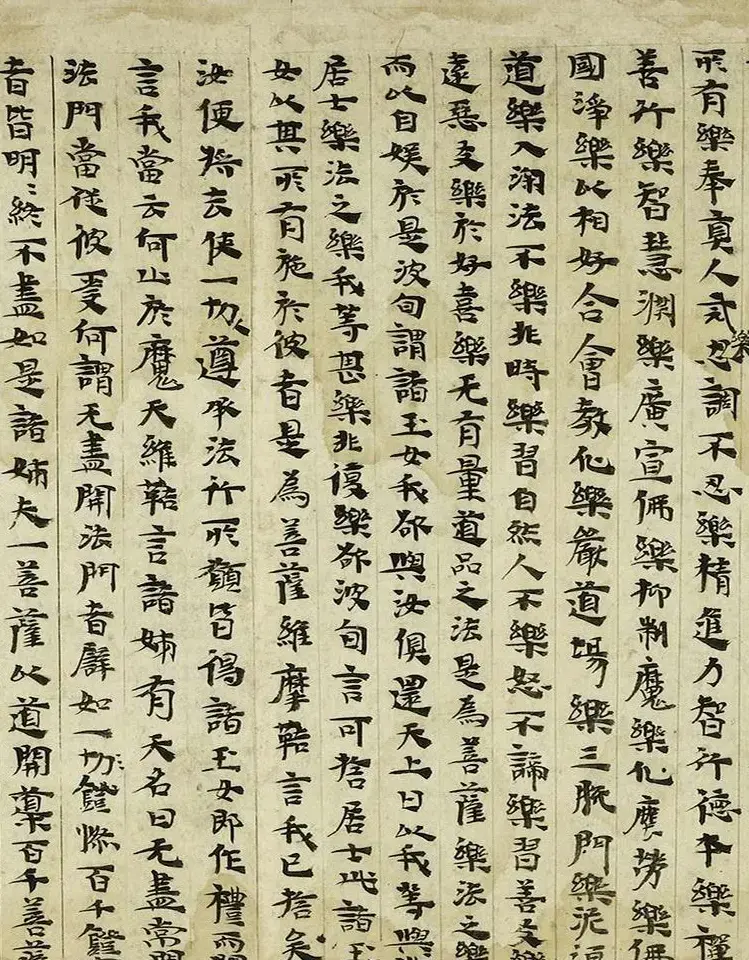 所有樂奉真人式樂忍調不忍樂精進力智行德本樂禪
善行樂智慧淵樂廣宣佛樂抑制魔樂化塵勞樂佛
國淨樂以相好合會教化樂嚴道場樂三脫門樂泥洹
道樂入深法不樂非時樂習自然人不樂怒不諦樂習善友樂
遠惡友樂於好喜樂无有量道品之法是為菩薩樂法之樂
而以自娛於是波旬謂諸玉女我欲與汝俱還天上曰以我等與
居士樂法之樂我等甚樂非復樂欲波旬言可捨居士此諸玉
女以其所有施於彼者是為菩薩維摩鞊言我已捨矣
汝便將去使一切人遵承法行所願皆得諸玉女即作禮而問
言我當云何止於魔天維鞊言諸姊有天名曰无盡常開
法門當從彼受何謂无盡開法門者辟如一切燈燃百千燈
者皆明〻終不盡如是諸姊夫一菩薩以道開導百千菩薩